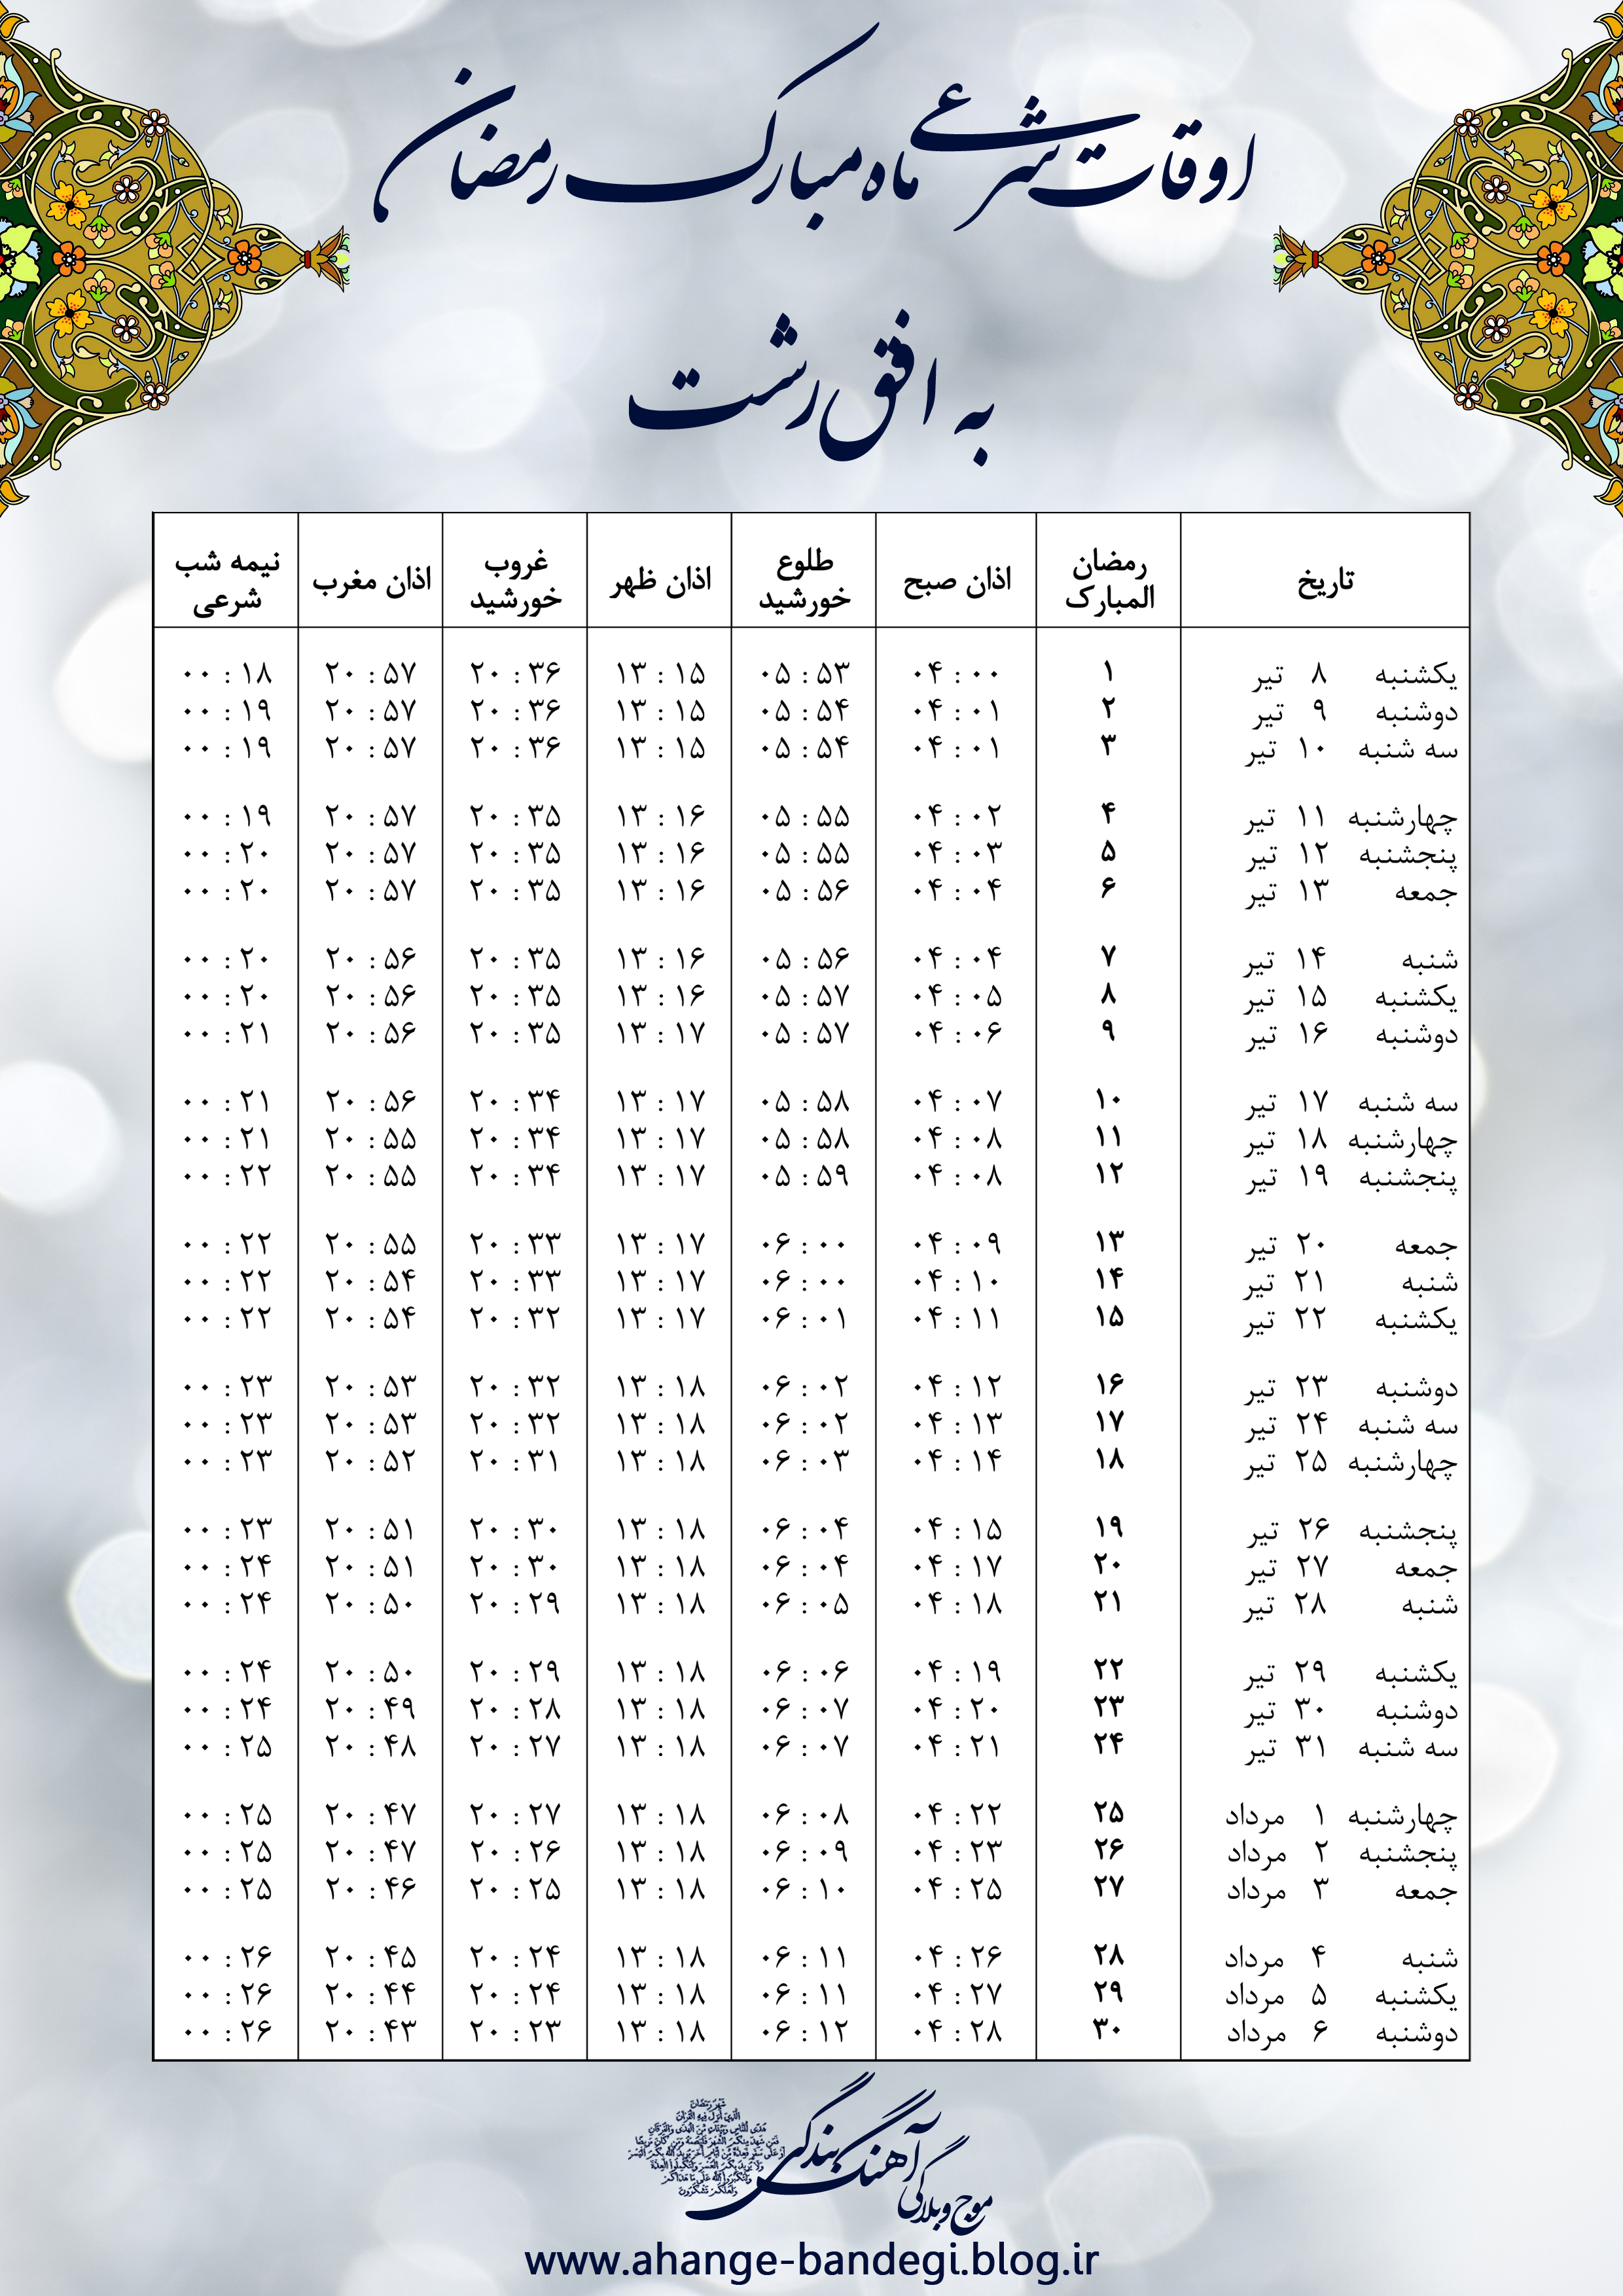 اوقات شرعی ماه مبارک رمضان
به افق رشت
تاریخ رمضان المبارک اذان صبح طلوع خورشید اذان ظهر غروب خورشید اذان مغرب نیمه شب شرعی
یکشنبه ۸ تیر ۱ ۰۴:۰۰ ۰۵:۵۳ ۱۳:۱۵ ۲۰:۳۶ ۲۰:۵۷ ۰۰:۱۸
دوشنبه ۹ تیر ۲ ۰۴:۰۱ ۰۵:۵۴ ۱۳:۱۵ ۲۰:۳۶ ۲۰:۵۷ ۰۰:۱۹
سه شنبه ۱۰ تیر ۳ ۰۴:۰۱ ۰۵:۵۴ ۱۳:۱۵ ۲۰:۳۶ ۲۰:۵۷ ۰۰:۱۹
چهارشنبه ۱۱ تیر ۴ ۰۴:۰۲ ۰۵:۵۵ ۱۳:۱۶ ۲۰:۳۵ ۲۰:۵۷ ۰۰:۱۹
پنجشنبه ۱۲ تیر ۵ ۰۴:۰۳ ۰۵:۵۵ ۱۳:۱۶ ۲۰:۳۵ ۲۰:۵۷ ۰۰:۲۰
جمعه ۱۳ تیر ۶ ۰۴:۰۴ ۰۵:۵۶ ۱۳:۱۶ ۲۰:۳۵ ۲۰:۵۷ ۰۰:۲۰
شنبه ۱۴ تیر ۷ ۰۴:۰۴ ۰۵:۵۶ ۱۳:۱۶ ۲۰:۳۵ ۲۰:۵۶ ۰۰:۲۰
یکشنبه ۱۵ تیر ۸ ۰۴:۰۵ ۰۵:۵۷ ۱۳:۱۶ ۲۰:۳۵ ۲۰:۵۶ ۰۰:۲۰
دوشنبه ۱۶ تیر ۹ ۰۴:۰۶ ۰۵:۵۷ ۱۳:۱۷ ۲۰:۳۵ ۲۰:۵۶ ۰۰:۲۱
سه شنبه ۱۷ تیر ۱۰ ۰۴:۰۷ ۰۵:۵۸ ۱۳:۱۷ ۲۰:۳۴ ۲۰:۵۶ ۰۰:۲۱
چهارشنبه ۱۸ تیر ۱۱ ۰۴:۰۸ ۰۵:۵۸ ۱۳:۱۷ ۲۰:۳۴ ۲۰:۵۵ ۰۰:۲۱
پنجشنبه ۱۹ تیر ۱۲ ۰۴:۰۸ ۰۵:۵۹ ۱۳:۱۷ ۲۰:۳۴ ۲۰:۵۵ ۰۰:۲۲
جمعه ۲۰ تیر ۱۳ ۰۴:۰۹ ۰۶:۰۰ ۱۳:۱۷ ۲۰:۳۳ ۲۰:۵۵ ۰۰:۲۲
شنبه ۲۱ تیر ۱۴ ۰۴:۱۰ ۰۶:۰۰ ۱۳:۱۷ ۲۰:۳۳ ۲۰:۵۴ ۰۰:۲۲
یکشنبه ۲۲ تیر ۱۵ ۰۴:۱۱ ۰۶:۰۱ ۱۳:۱۷ ۲۰:۳۲ ۲۰:۵۴ ۰۰:۲۲
دوشنبه ۲۳ تیر ۱۶ ۰۴:۱۲ ۰۶:۰۲ ۱۳:۱۸ ۲۰:۳۲ ۲۰:۵۳ ۰۰:۲۳
سه شنبه ۲۴ تیر ۱۷ ۰۴:۱۳ ۰۶:۰۲ ۱۳:۱۸ ۲۰:۳۲ ۲۰:۵۳ ۰۰:۲۳
چهارشنبه ۲۵ تیر ۱۸ ۰۴:۱۴ ۰۶:۰۳ ۱۳:۱۸ ۲۰:۳۱ ۲۰:۵۲ ۰۰:۲۳
پنجشنبه ۲۶ تیر ۱۹ ۰۴:۱۵ ۰۶:۰۴ ۱۳:۱۸ ۲۰:۳۰ ۲۰:۵۱ ۰۰:۲۳
جمعه ۲۷ تیر ۲۰ ۰۴:۱۷ ۰۶:۰۴ ۱۳:۱۸ ۲۰:۳۰ ۲۰:۵۱ ۰۰:۲۴
شنبه ۲۸ تیر ۲۱ ۰۴:۱۸ ۰۶:۰۵ ۱۳:۱۸ ۲۰:۲۹ ۲۰:۵۰ ۰۰:۲۴
یکشنبه ۲۹ تیر ۲۲ ۰۴:۱۹ ۰۶:۰۶ ۱۳:۱۸ ۲۰:۲۹ ۲۰:۵۰ ۰۰:۲۴
دوشنبه ۳۰ تیر ۲۳ ۰۴:۲۰ ۰۶:۰۷ ۱۳:۱۸ ۲۰:۲۸ ۲۰:۴۹ ۰۰:۲۴
سه شنبه ۳۱ تیر ۲۴ ۰۴:۲۱ ۰۶:۰۷ ۱۳:۱۸ ۲۰:۲۷ ۲۰:۴۸ ۰۰:۲۵
چهارشنبه ۱ مرداد ۲۵ ۰۴:۲۲ ۰۶:۰۸ ۱۳:۱۸ ۲۰:۲۷ ۲۰:۴۷ ۰۰:۲۵
پنجشنبه ۲ مرداد ۲۶ ۰۴:۲۳ ۰۶:۰۹ ۱۳:۱۸ ۲۰:۲۶ ۲۰:۴۷ ۰۰:۲۵
جمعه ۳ مرداد ۲۷ ۰۴:۲۵ ۰۶:۱۰ ۱۳:۱۸ ۲۰:۲۵ ۲۰:۴۶ ۰۰:۲۵
شنبه ۴ مرداد ۲۸ ۰۴:۲۶ ۰۶:۱۱ ۱۳:۱۸ ۲۰:۲۴ ۲۰:۴۵ ۰۰:۲۶
یکشنبه ۵ مرداد ۲۹ ۰۴:۲۷ ۰۶:۱۱ ۱۳:۱۸ ۲۰:۲۴ ۲۰:۴۴ ۰۰:۲۶
دوشنبه ۶ مرداد ۳۰ ۰۴:۲۸ ۰۶:۱۲ ۱۳:۱۸ ۲۰:۲۳ ۲۰:۴۳ ۰۰:۲۶
موج وبلاگی آهنگ بندگی
شهر رمضان
الذی انزل فیه القرآن
www.ahange-bandegi.blog.ir